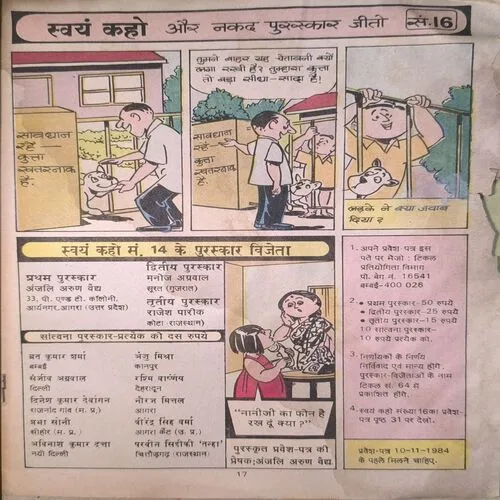 स्वयं कहो और नकद पुरस्कार जीतो सं.16
सावधान
रहें—
कुत्ता
खतरनाक
है.
तुमने बाहर यह चेतावनी क्यों
लगा रखी है? तुम्हारा कुत्ता
तो बड़ा सीधा-सादा है!
सावधान
रहें—
कुत्ता
खतरनाक
है.
लड़के ने क्या जवाब
दिया?
स्वयं कहो सं. 14 के पुरस्कार विजेता
प्रथम पुरस्कार
अंजलि अरुण वैद्य
33, पी. एण्ड टी. कॉलोनी,
आर्यनगर,आगरा (उत्तर प्रदेश)
द्वितीय पुरस्कार
मनोज अग्रवाल
सूरत (गुजरात)
तृतीय पुरस्कार
राजेश पारीक
कोटा (राजस्थान)
सांत्वना पुरस्कार-प्रत्येक को दस रुपये
ब्रत कुमार शर्मा
बम्बई
संजीव अग्रवाल
दिल्ली
दिनेश कुमार देवांगन
राजनांद गांव (म. प्र.)
प्रभा सोनी
सीहोर (म. प्र.)
अविनाश कुमार दत्ता
नयी दिल्ली
अंजू मिश्रा
कानपुर
रश्मि वार्ष्णेय
देहरादून
नीरज मित्तल
आगरा
वीरेंद्र सिंह वर्मा
आगरा कैंट (उ. प्र.)
परवीन सिद्दीकी 'तन्हा'
चित्तौड़गढ़ (राजस्थान)
"नानीजी का फोन है
रख दूं क्या?"
पुरस्कृत प्रवेश-पत्र की
प्रेषक:अंजलि अरुण वैद्य.
1. अपने प्रवेश-पत्र इस
पते पर भेजो: टिंकल
प्रतियोगिता विभाग
पो. बेग नं. 16541
बम्बई-400 028
2. • प्रथम पुरस्कार-50 रुपये
• द्वितीय पुरस्कार-25 रुपये
• तृतीय पुरस्कार-15 रुपये
10 सांत्वना पुरस्कार-
10 रुपये प्रत्येक को.
3. निर्णायकों के निर्णय
निर्विवाद एवं मान्य होंगे.
पुरस्कार-विजेताओं के नाम
टिंकल सं. 64 में
प्रकाशित होंगे.
4. स्वयं कहो संख्या 16का प्रवेश-
पत्र पृष्ठ 31 पर देखो.
प्रवेश-पत्र 10-11-1984
के पहले मिलने चाहिए.
17